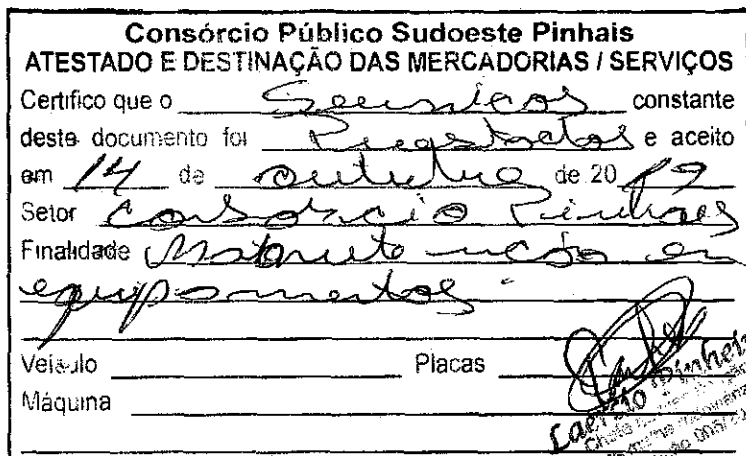 Consórcio Público Sudoeste Pinhais
ATESTADO E DESTINAÇÃO DAS MERCADORIAS / SERVIÇOS
Certifico que o Serviços constante
deste documento foi Prestados e aceito
em 14 de outubro de 20 19
Setor Consórcio Pinhais
Finalidade Manutenção em
equipamentos
Veículo Placas
Máquina
Laercio Pinheir